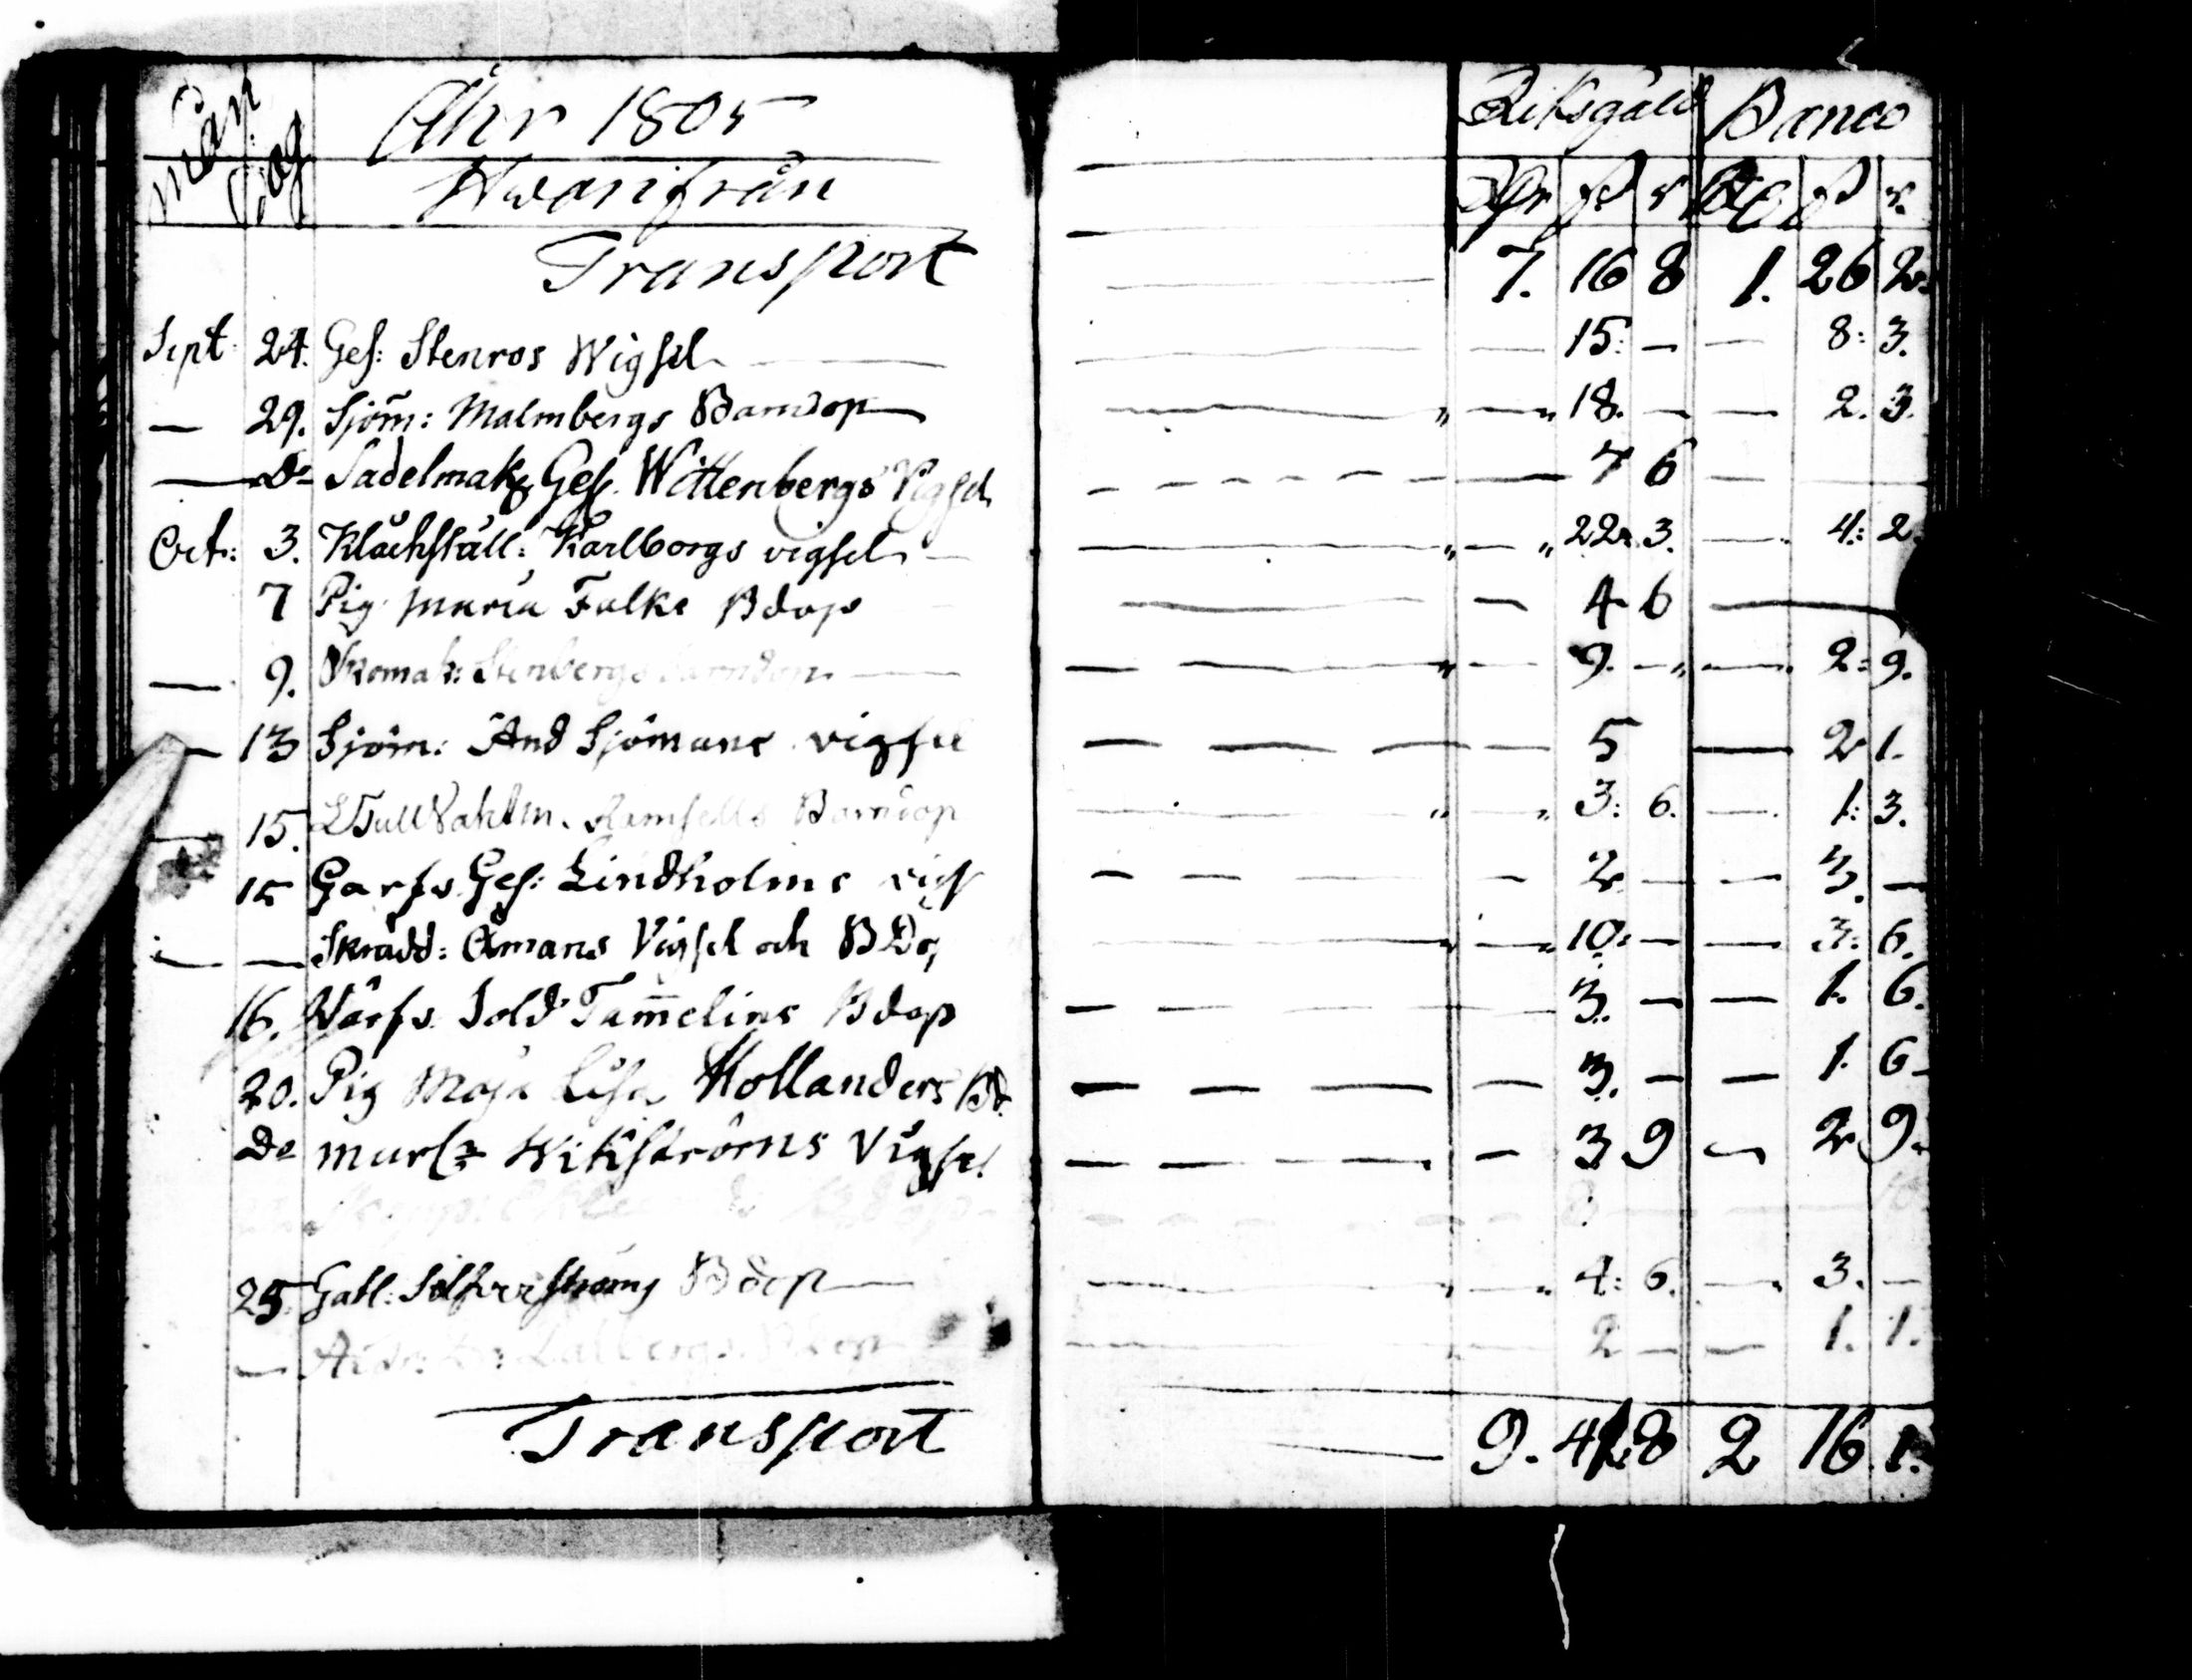 Mån: Dag Åhr 1805 Riksgäld Banco
Hwarifrån Rdr ß r Rd ß r.
Transport 7. 16 8 1. 26 2.
Sept: 24. Ges: Stenros Wigsel — — 15: — — 8: 3.
— 29. Sjöm: Malmbergs Barndop — — 18. — — 2. 3.
— Do Sadelmak Ges. Wittenbergs Vigsel — — 7 6 —
Oct: 3. Klåckställ: Karlborgs vigsel — — 22. 3. — 4: 2
7 Pig Maria Falke Bdop — — 4 6 —
— 9. Skomak: Stenbergs barndop — — 9. — — 2: 9.
— 13 Sjöm: And Sjömans vigsel — — 5 — 2 1.
— 15. Ramsells Barndop — 3: 6. — 1: 3.
15 Garfv. Ges: Lindholms vigs — — 2. — — 3. —
— — Skrädd: Åmans Vigsel och BDop — — 10: — — 3: 6.
16. Värfv. Sold Tam̄elins Bdop — — 3. — — 1. 6.
20. Pig Maja Lisa Hollanders Bd. — — 3. — — 1. 6
Do murs Wikströms Vigsel — — 3 9 — 2 9.
25. Gatl: Silfverströms Bdop — — 4: 6. — 3. —
— — 2 — — 1. 1.
Transport — 9. 8 2 16. 1.